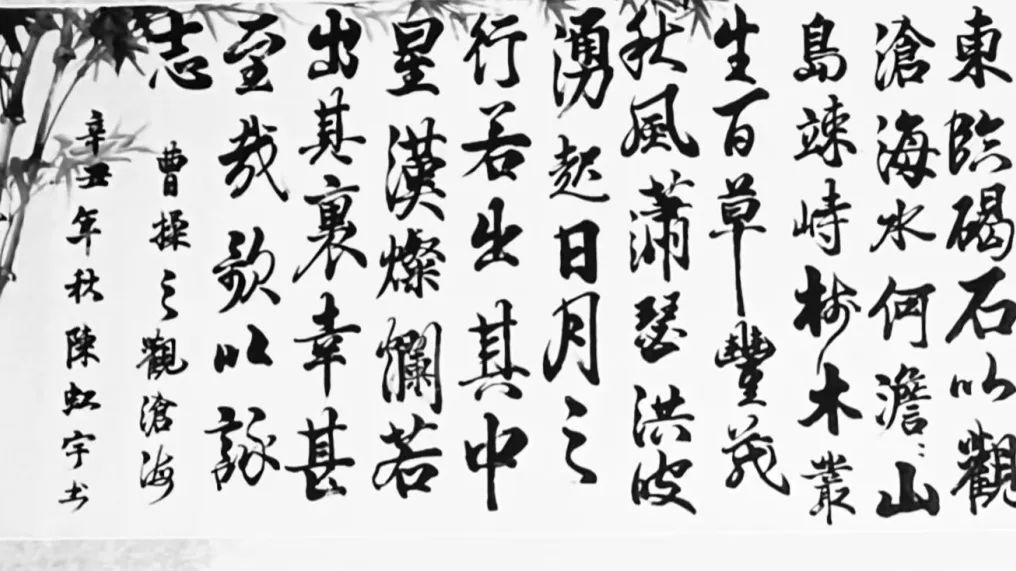 東臨碣石以觀
滄海水何澹〻山
島竦峙樹木叢
生百草豐茂
秋風蕭瑟洪波
湧起日月之
行若出其中
星漢燦爛若
出其裏幸甚
至哉歌以詠
志
曹操之觀滄海
辛丑年秋陳虹宇书